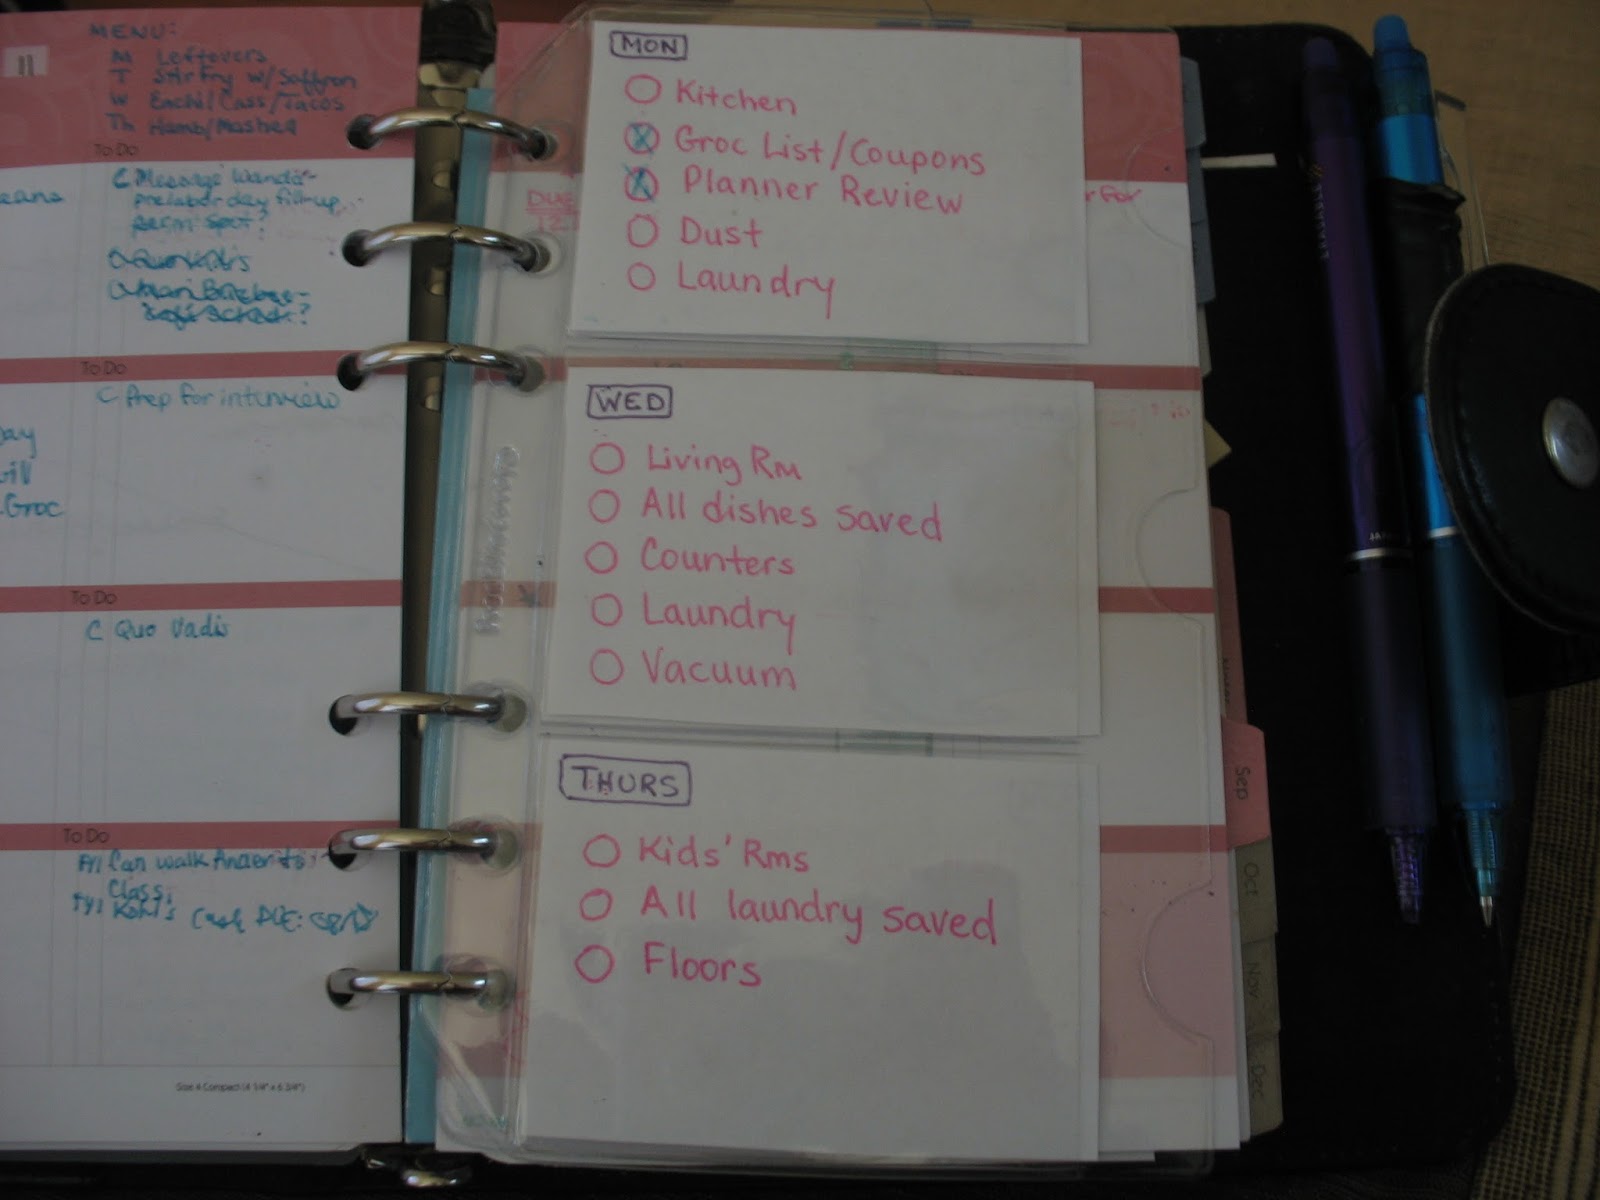 11
MENU:
M Leftovers
T Stir Fry w/Saffron
W Enchi/Cass/Tacos
Th Hamb/Mashed
To Do
C Message Wanda-
prelabor day fill-up
perm spot?
eans
To Do
C Prep for interview
ay
ill
Groc
To Do
C Quo Vadis
To Do
Can walk
Class.
Kohl's Cash DUE:
Size 4 Compact (4 1/4" x 6 3/4")
DUE
12
r For
MON
Kitchen
Groc List/Coupons
Planner Review
Dust
Laundry
WED
Living Rm
All dishes saved
Counters
Laundry
Vacuum
THURS
Kids' Rms
All laundry saved
Floors
Sep
Oct
Nov
Dec